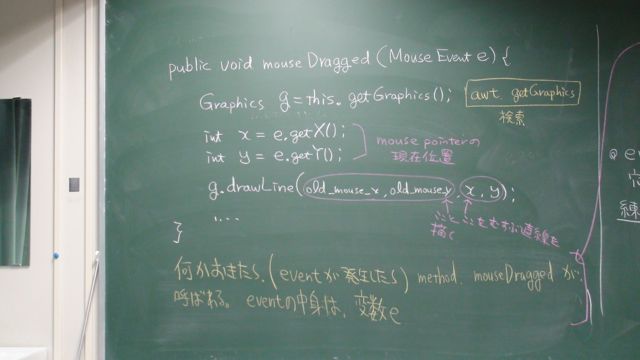 public void mouseDragged (MouseEvent e) {
Graphics g = this.getGraphics(); awt getGraphics
検索
int x = e.getX();
int y = e.getY();
mouse pointerの
現在位置
g.drawLine(old_mouse_x, old_mouse_y, x, y);
こことここをむすぶ直線を
描く
....
}
何かおきたら、(eventが発生したら) method, mouseDragged が、
呼ばれる。eventの中身は、変数e
@ e
練